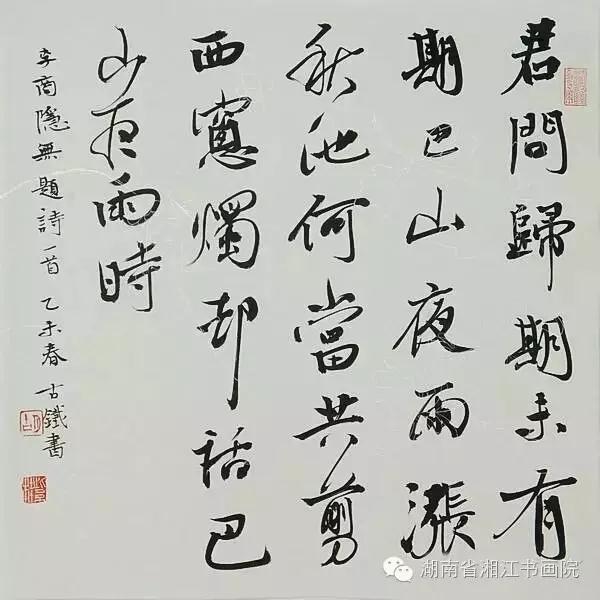 君問歸期未有
期巴山夜雨漲
秋池何當共剪
西窗燭却話巴
山夜雨時
李商隱無題詩一首 乙未春 古鐵書
湖南省湘江书画院